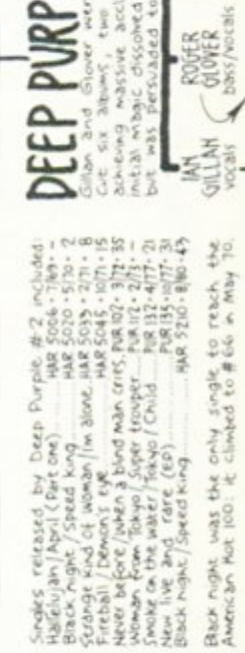 Singles released by Deep Purple #2 included:
Hallelujah/April (Part one) HAR 5006 · 7/69 · –
Black night/Speed king HAR 5020 · 5/70 · 2
Strange kind of woman/Im alone. HAR 5033 · 2/71 · 8
Fireball/Demon's eye HAR 5045 · 10/71 · 15
Never before/When a blind man cries. PUR 102 · 3/72 · 35
Woman from Tokyo/Super trouper PUR 112 · 2/73 · –
Smoke on the water/Tokyo/Child PUR 132 · 4/77 · 21
New live and rare (EP) PUR 135 · 10/77 · 31
Black night/Speed king HAR 5210 · 8/80 · 43
Black night was the only single to reach the
American Hot 100: it climbed to #66 in May 70.
DEEP PURP
Gillan and Glover wer
Cut six albums, two
achieving massive accl
initial magic dissolved
but was persuaded to
IAN
GILLAN
vocals
ROGER
GLOVER
bass/vocals